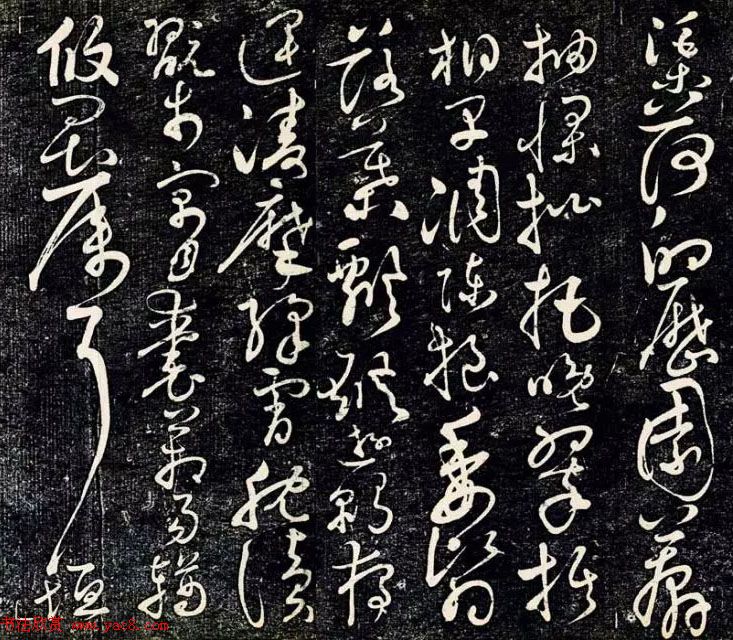 渠荷的歷園莽
抽條枇杷晚翠梧
桐早凋陳根委翳
落葉飄颻遊鵾獨
運凌摩絳霄耽讀
翫市寓目囊箱易輶
攸畏屬耳垣
书法欣赏 www.yac8.com